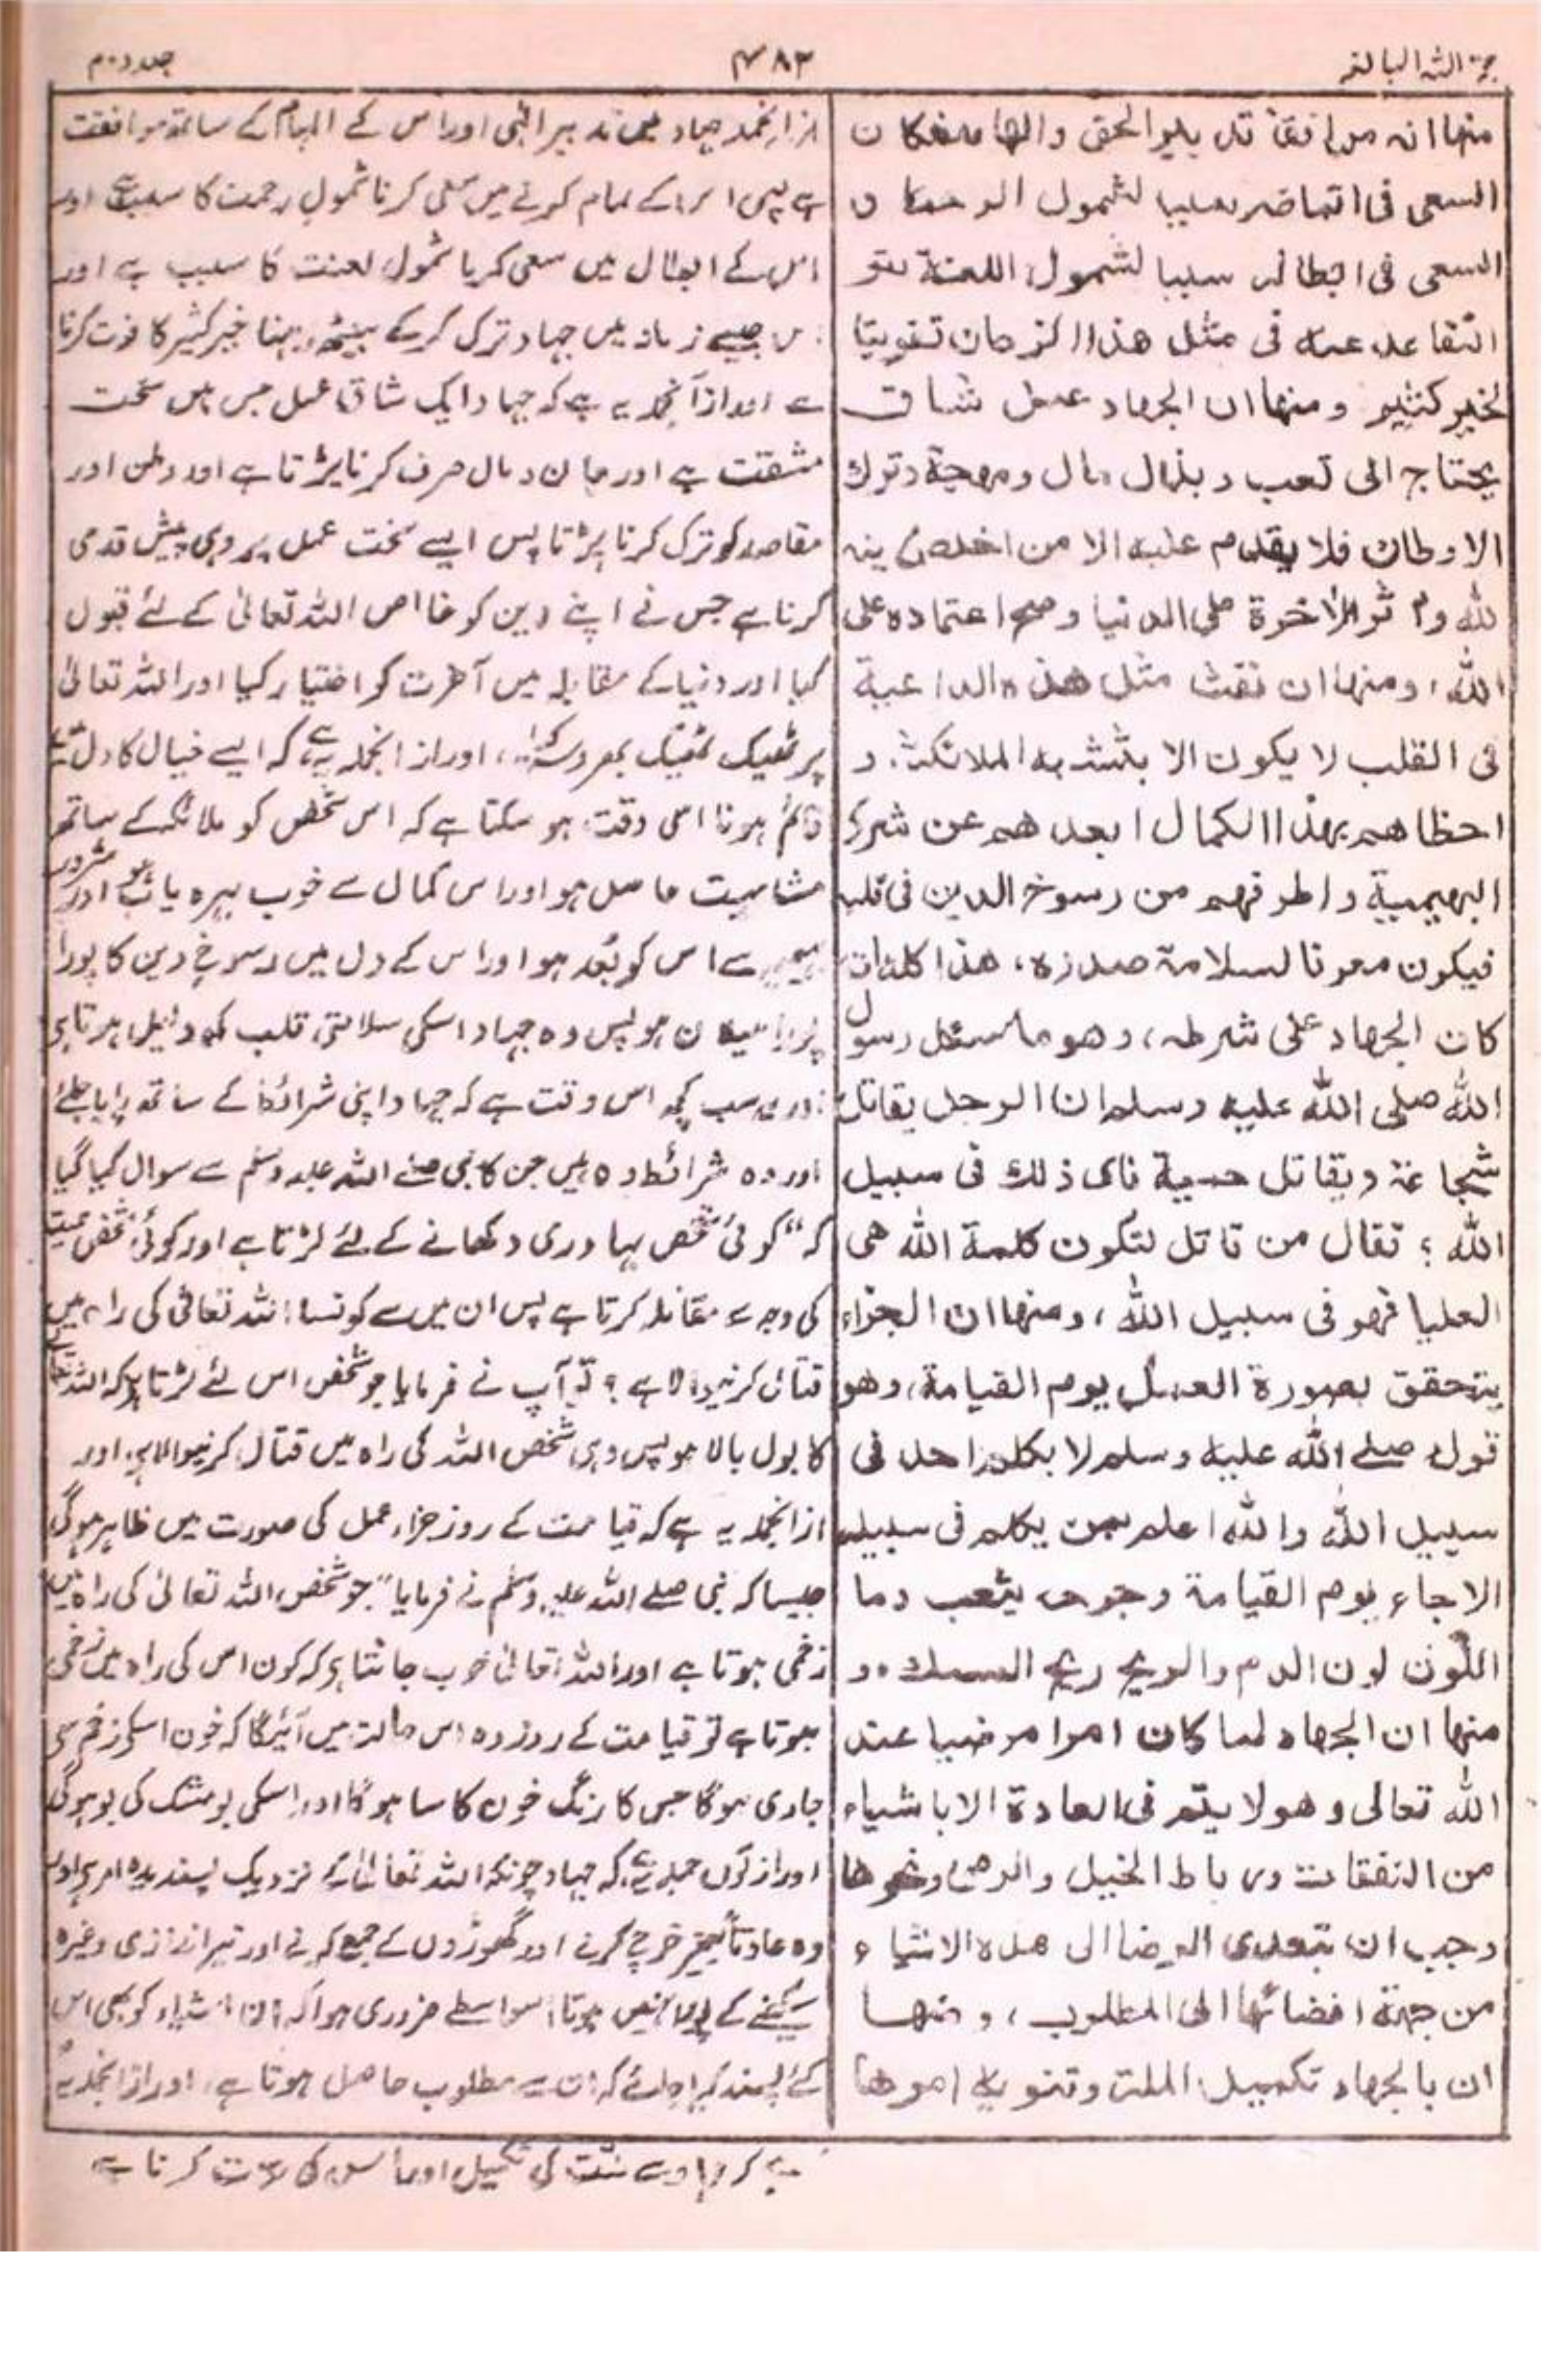 حجۃ اللہ البالغہ
۴۸۳
جلد دوم
منها انه موافقة تدبير الحق والهامه فكان
السعى فى اتمامه سببا لشمول الرحمة و
السعى فى ابطاله سببا لشمول اللعنة و
التقاعد عنه فى مثل هذا الزمان تفويتا
لخير كثير ومنها ان الجهاد عمل شاق
يحتاج الى تعب وبذل مال ومهجة وترك
الاوطان فلا يقدم عليه الا من اخلص دينه
لله وآثر الآخرة على الدنيا وصح اعتماده على
الله، ومنها ان نفث مثل هذه الداعية
فى القلب لا يكون الا بتشبه الملائكة، و
احظاهم بهذا الكمال ابعدهم عن شرور
البهيمية واطرفهم من رسوخ الدين فى قلبه
فيكون معرفا لسلامة صدره، هذا كله ان
كان الجهاد على شرطه، وهو ما سئل رسول
الله صلى الله عليه وسلم ان الرجل يقاتل
شجاعة ويقاتل حمية فاى ذلك فى سبيل
الله؟ فقال من قاتل لتكون كلمة الله هى
العليا فهو فى سبيل الله، ومنها ان الجزاء
يتحقق بصورة العمل يوم القيامة، وهو
قوله صلے الله عليه وسلم لا يكلم احد فى
سبيل الله والله اعلم بمن يكلم فى سبيله
الا جاء يوم القيامة وجرحه يثعب دما
اللون لون الدم والريح ريح المسك، و
منها ان الجهاد لما كان امرا مرضيا عند
الله تعالى وهو لا يتم فى العادة الا باشياء
من النفقات ورباط الخيل والرمى ونحوها
وجب ان يتعدى الرضا الى هذه الاشياء
من جهة افضائها الى المطلوب، ومنها
ان بالجهاد تكميل الملة وتنويه امرها
ازانجملہ جہاد میں تدبیر الٰہی اور اس کے الہام کے ساتھ موافقت
ہے پس اس کے تمام کرنے میں سعی کرنا شمول رحمت کا سبب ہے اور
اس کے ابطال میں سعی کرنا شمول لعنت کا سبب ہے اور
اس جیسے زمانہ میں جہاد ترک کرکے بیٹھ رہنا خیر کثیر کا فوت کرنا
ہے اور ازآنجملہ یہ ہے کہ جہاد ایک شاق عمل جس میں سخت
مشقت ہے اور جان و مال صرف کرنا پڑتا ہے اور وطن اور
مقاصد کو ترک کرنا پڑتا پس ایسے سخت عمل پر وہی پیش قدمی
کرتا ہے جس نے اپنے دین کو خالص اللہ تعالیٰ کے لئے قبول
کیا اور دنیا کے مقابلہ میں آخرت کو اختیار کیا اور اللہ تعالیٰ
پر ٹھیک ٹھیک بھروسہ کیا، اور از انجملہ یہ ہے کہ ایسے خیال کا دل میں
قائم ہونا اسی وقت ہو سکتا ہے کہ اس شخص کو ملائکہ کے ساتھ
مشابہت حاصل ہو اور اس کمال سے خوب بہرہ یاب ہو اور شرور
بہیمیہ سے اس کو بُعد ہو اور اس کے دل میں رسوخ دین کا پورا
پورا میلان ہو پس وہ جہاد اسکی سلامتی قلب کو دلیل ہوتا ہے
اور یہ سب کچھ اس وقت ہے کہ جہاد اپنی شرائط کے ساتھ پایا جائے
اور وہ شرائط وہ ہیں جن کا نبی صلے اللہ علیہ وسلم سے سوال کیا گیا
کہ "کوئی شخص بہادری دکھانے کے لئے لڑتا ہے اور کوئی شخص حمیت
کی وجہ سے مقاتلہ کرتا ہے پس ان میں سے کونسا اللہ تعالیٰ کی راہ میں
قتال کرنیوالا ہے؟ تو آپ نے فرمایا جو شخص اس لئے لڑتا ہے کہ اللہ تعالیٰ
کا بول بالا ہو پس وہی شخص اللہ کی راہ میں قتال کرنیوالا ہے، اور
ازانجملہ یہ ہے کہ قیامت کے روز جزاء عمل کی صورت میں ظاہر ہوگی
جیسا کہ نبی صلے اللہ علیہ وسلم نے فرمایا "جو شخص اللہ تعالیٰ کی راہ میں
زخمی ہوتا ہے اور اللہ تعالیٰ خوب جانتا ہے کہ کون اس کی راہ میں زخمی
ہوتا ہے تو قیامت کے روز وہ اس حالت میں آئیگا کہ خون اسکے زخم سے
جاری ہوگا جس کا رنگ خون کا سا ہوگا اور اسکی بو مشک کی بو ہوگی
اور ازاں جملہ یہ ہے کہ جہاد چونکہ اللہ تعالیٰ کے نزدیک پسندیدہ امر ہے اور
وہ عادتاً بغیر خرچ کرنے اور گھوڑوں کے جمع کرنے اور تیراندازی وغیرہ
سیکھنے کے پورا نہیں ہوتا اسواسطے ضروری ہوا کہ ان اشیاء کو بھی اس
لئے پسند کیا جائے کہ ان سے مطلوب حاصل ہوتا ہے، اور ازانجملہ یہ
ہے کہ جہاد سے ملت کی تکمیل اور